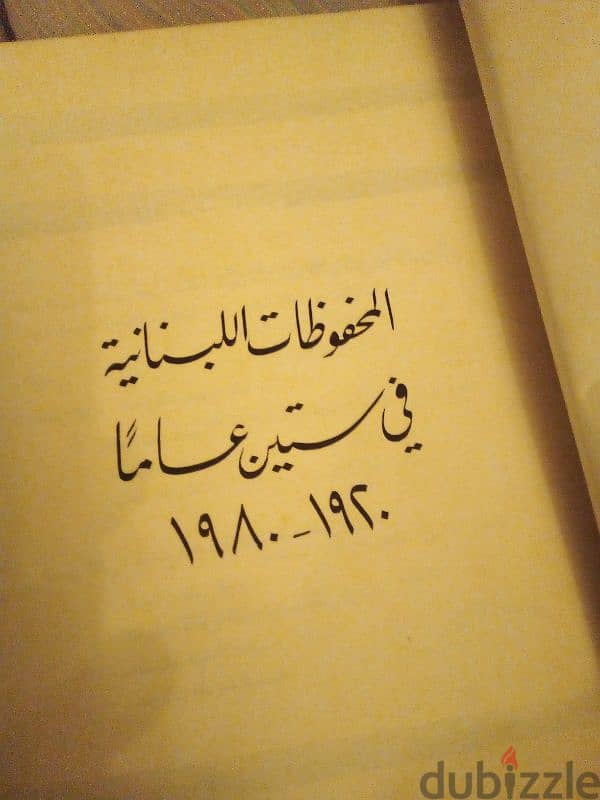 المحفوظات اللبنانية
في ستين عامًا
١٩٢٠ - ١٩٨٠
dubizzle